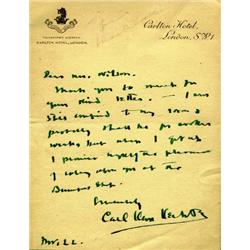 TELEGRAPHIC ADDRESS
CARLTON HOTEL, LONDON.
Carlton Hotel,
London, S.W.1
Dear Mrs. Wilson.
Thank you so much for
your kind letter – I am
still confined to my room &
probably shall be for another
week, but when I get up
I promise myself the pleasure
of calling upon you at the
Sincerely
Carl Van Vechten